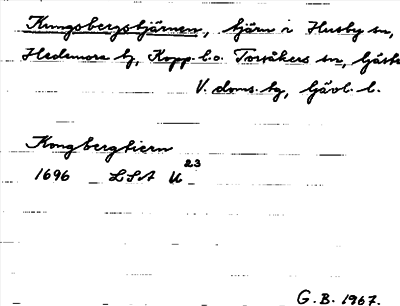 Kungsbergstjärnen, tjärn i Husby sn,
Hedemora tg, Kopp. l. o. Torsåkers sn, Gästr.
V. doms. tg, Gävl. l.
Kongbergtiern
1696 LSA U 23
G. B. 1967.